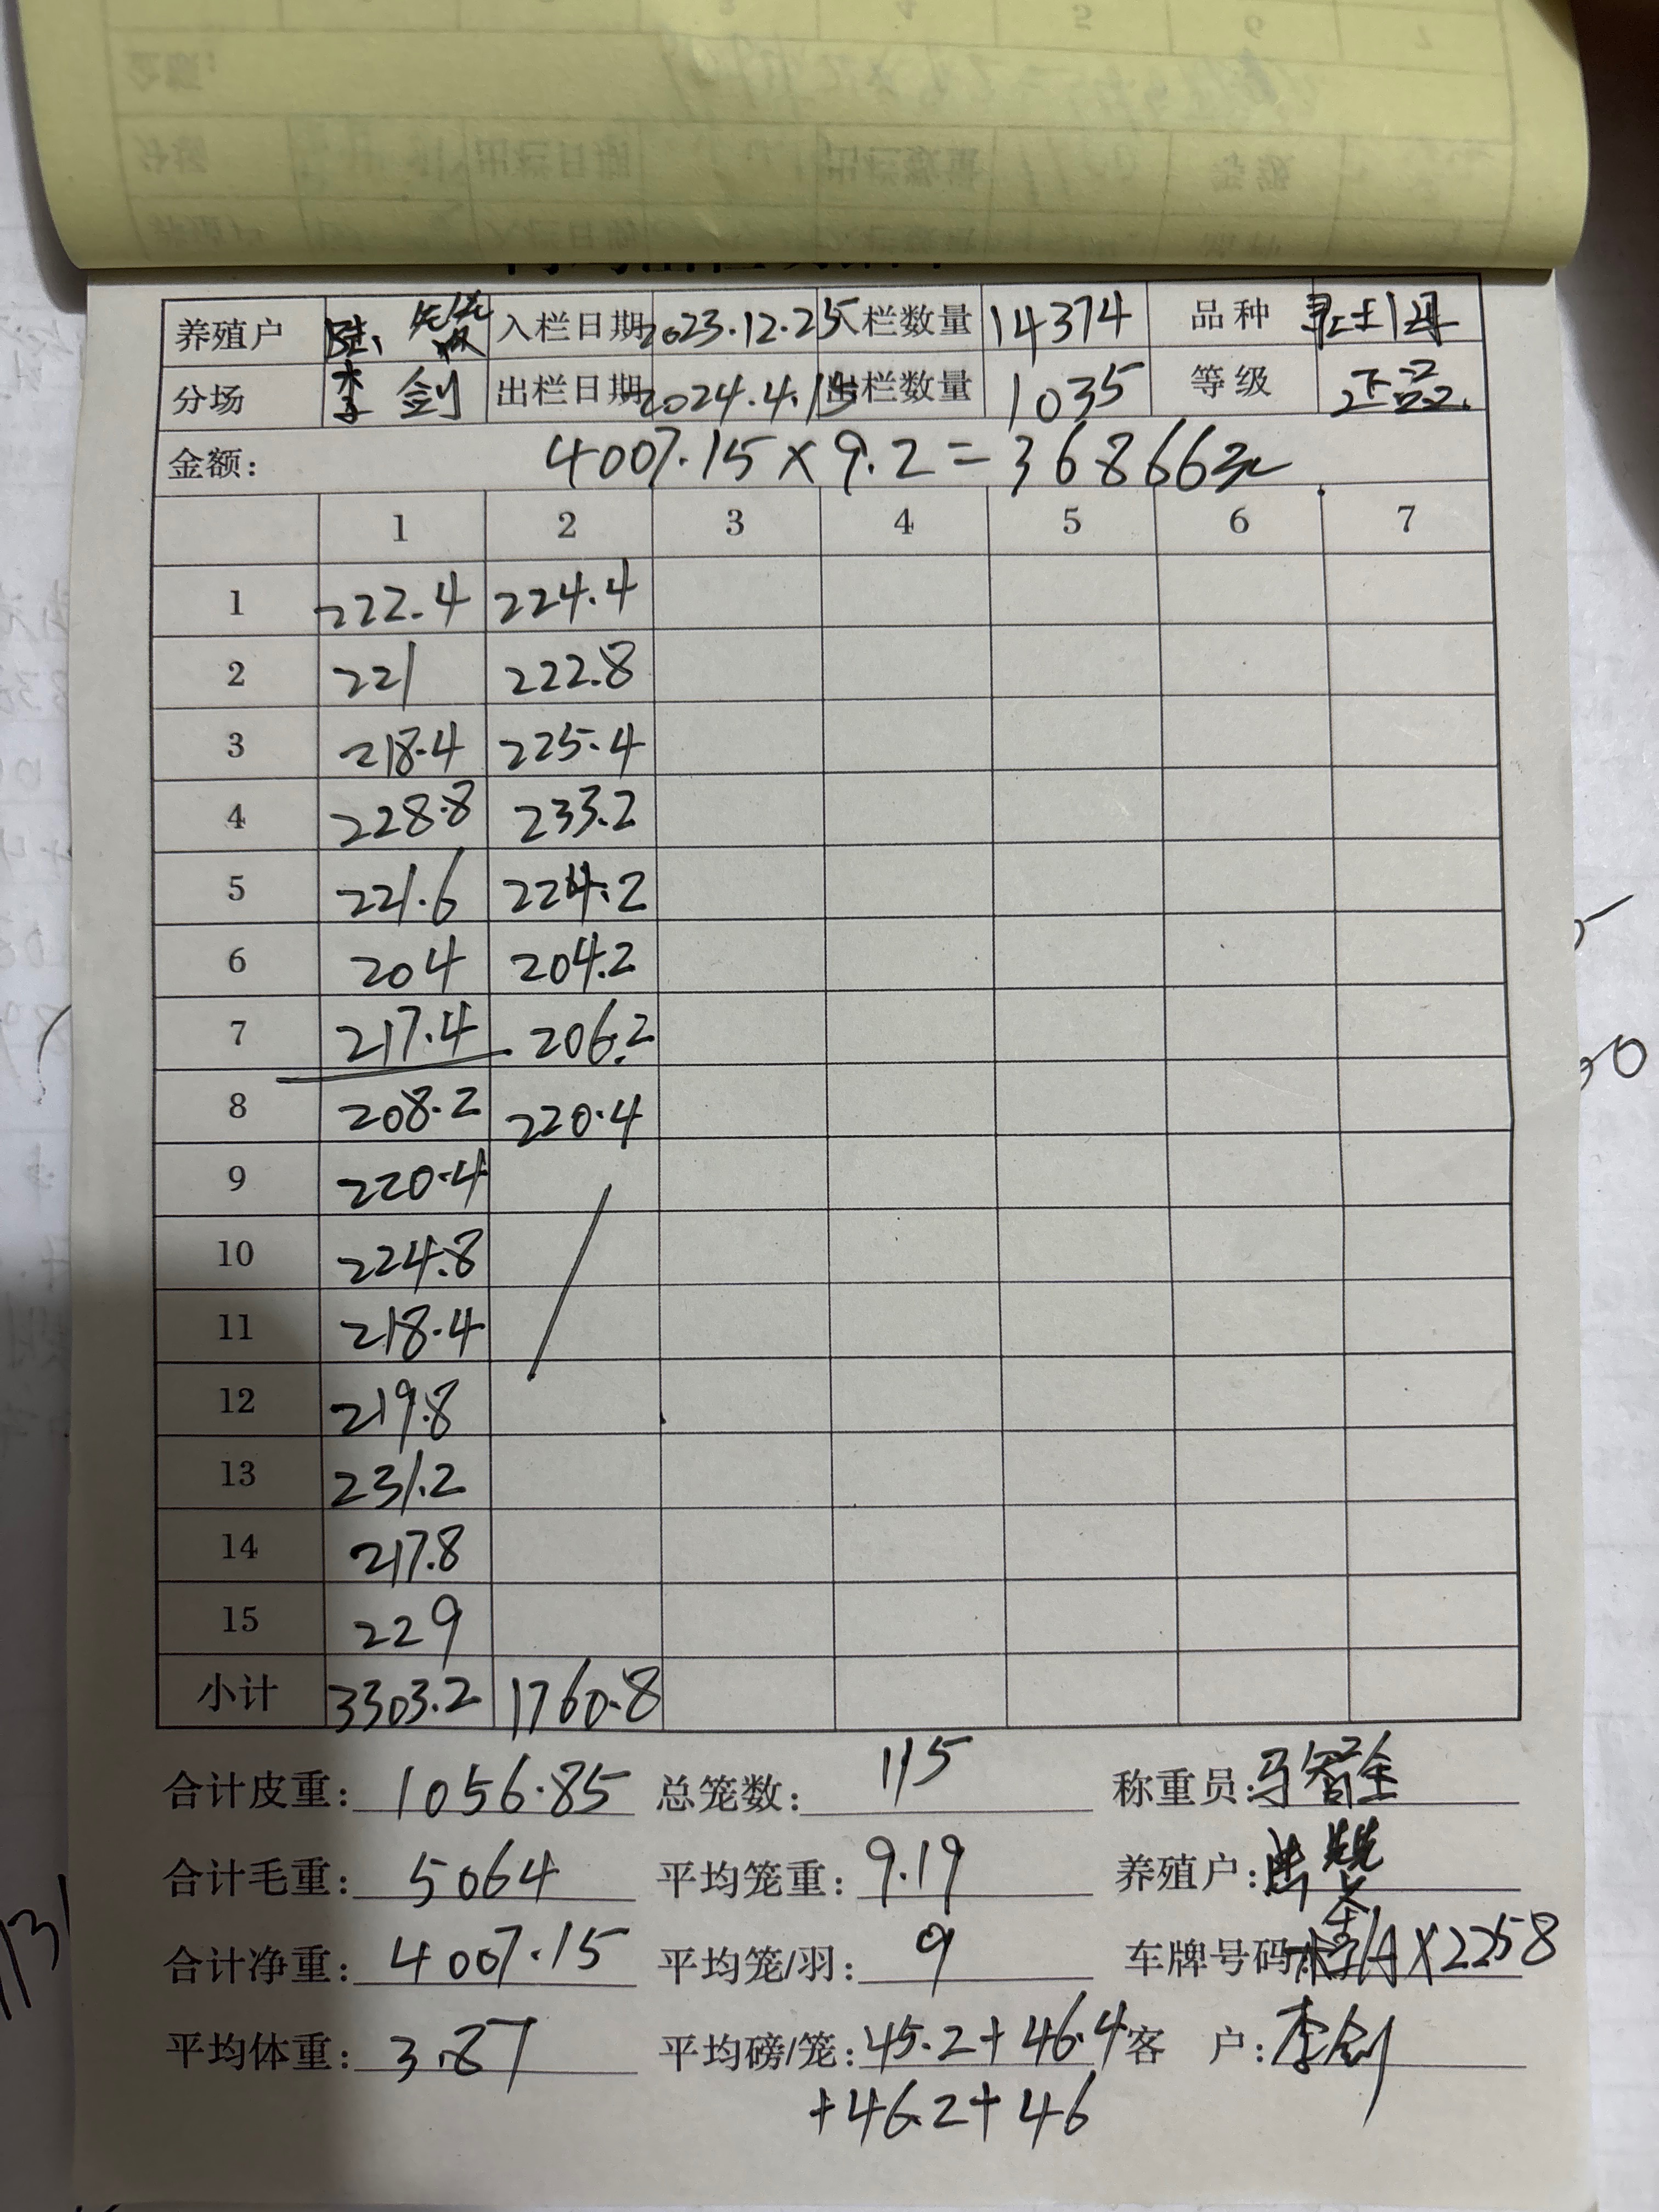 养殖户 入栏日期 2023.12.25 入栏数量 14374 品种
分场 李剑 出栏日期 2024.4.15 出栏数量 1035 等级 正品.
金额: 4007.15×9.2=36866元
1 2 3 4 5 6 7
1 222.4 224.4
2 221 222.8
3 218.4 225.4
4 228.8 233.2
5 221.6 224.2
6 204 204.2
7 217.4 206.2
8 208.2 220.4
9 220.4
10 224.8
11 218.4
12 219.8
13 231.2
14 217.8
15 229
小计 3303.2 1760.8
合计皮重: 1056.85 总笼数: 115 称重员: 马智全
合计毛重: 5064 平均笼重: 9.19 养殖户:
合计净重: 4007.15 平均笼/羽: 9 车牌号码: X2258
平均体重: 3.87 平均磅/笼: 45.2+46.4 客 户: 李剑
+46.2+46